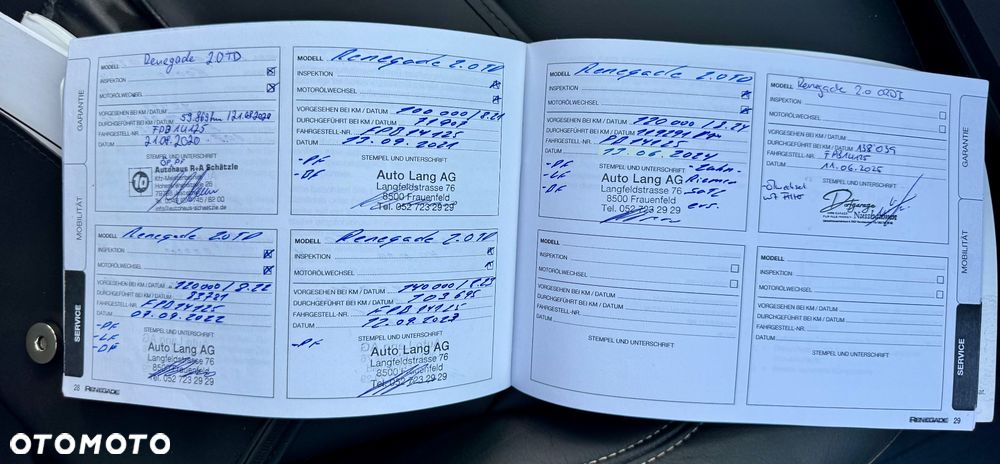 GARANTIE
MOBILITÄT
SERVICE
MODELL Renegade 2.0TD
INSPEKTION
MOTORÖLWECHSEL
VORGESEHEN BEI KM / DATUM
DURCHGEFÜHRT BEI KM / DATUM
FAHRGESTELL-NR. FPB14125
DATUM 21.08.2020
STEMPEL UND UNTERSCHRIFT
Autohaus R+A Schätzle
MODELL Renegade 2.0TD
INSPEKTION
MOTORÖLWECHSEL
VORGESEHEN BEI KM / DATUM 100 000 / 8.21
DURCHGEFÜHRT BEI KM / DATUM
FAHRGESTELL-NR. FPB 14125
DATUM 13.09.2021
STEMPEL UND UNTERSCHRIFT
-PF
-ÖF
Auto Lang AG
Langfeldstrasse 76
8500 Frauenfeld
Tel. 052 723 29 29
MODELL Renegade 2.0TD
INSPEKTION
MOTORÖLWECHSEL
VORGESEHEN BEI KM / DATUM 120000 / 8.22
DURCHGEFÜHRT BEI KM / DATUM
FAHRGESTELL-NR. FPB 14125
DATUM 07.09.2022
STEMPEL UND UNTERSCHRIFT
-PF
-LF
-ÖF
Auto Lang AG
Langfeldstrasse 76
8500 Frauenfeld
Tel. 052 723 29 29
MODELL Renegade 2.0TD
INSPEKTION
MOTORÖLWECHSEL
VORGESEHEN BEI KM / DATUM 140000 / 8.23
DURCHGEFÜHRT BEI KM / DATUM 103 695
FAHRGESTELL-NR. FPB 14125
DATUM 12.09.2023
STEMPEL UND UNTERSCHRIFT
-PF
Auto Lang AG
Langfeldstrasse 76
8500 Frauenfeld
Tel. 052 723 29 29
28 RENEGADE
MODELL Renegade 2.0TD
INSPEKTION
MOTORÖLWECHSEL
VORGESEHEN BEI KM / DATUM 120000 / 8.24
DURCHGEFÜHRT BEI KM / DATUM
FAHRGESTELL-NR.
DATUM
STEMPEL UND UNTERSCHRIFT
-PF
-LF
-ÖF
Auto Lang AG
Langfeldstrasse 76
8500 Frauenfeld
Tel. 052 723 29 29
Zahn-
Riemen
Satz
ers.
MODELL Renegade 2.0
INSPEKTION
MOTORÖLWECHSEL
VORGESEHEN BEI KM / DATUM
DURCHGEFÜHRT BEI KM / DATUM 138 039
FAHRGESTELL-NR. FPB14125
DATUM 11.06.2025
STEMPEL UND UNTERSCHRIFT
MODELL
INSPEKTION
MOTORÖLWECHSEL
VORGESEHEN BEI KM / DATUM
DURCHGEFÜHRT BEI KM / DATUM
FAHRGESTELL-NR.
DATUM
STEMPEL UND UNTERSCHRIFT
MODELL
INSPEKTION
MOTORÖLWECHSEL
VORGESEHEN BEI KM / DATUM
DURCHGEFÜHRT BEI KM / DATUM
FAHRGESTELL-NR.
DATUM
STEMPEL UND UNTERSCHRIFT
GARANTIE
MOBILITÄT
SERVICE
RENEGADE 29
OTOMOTO